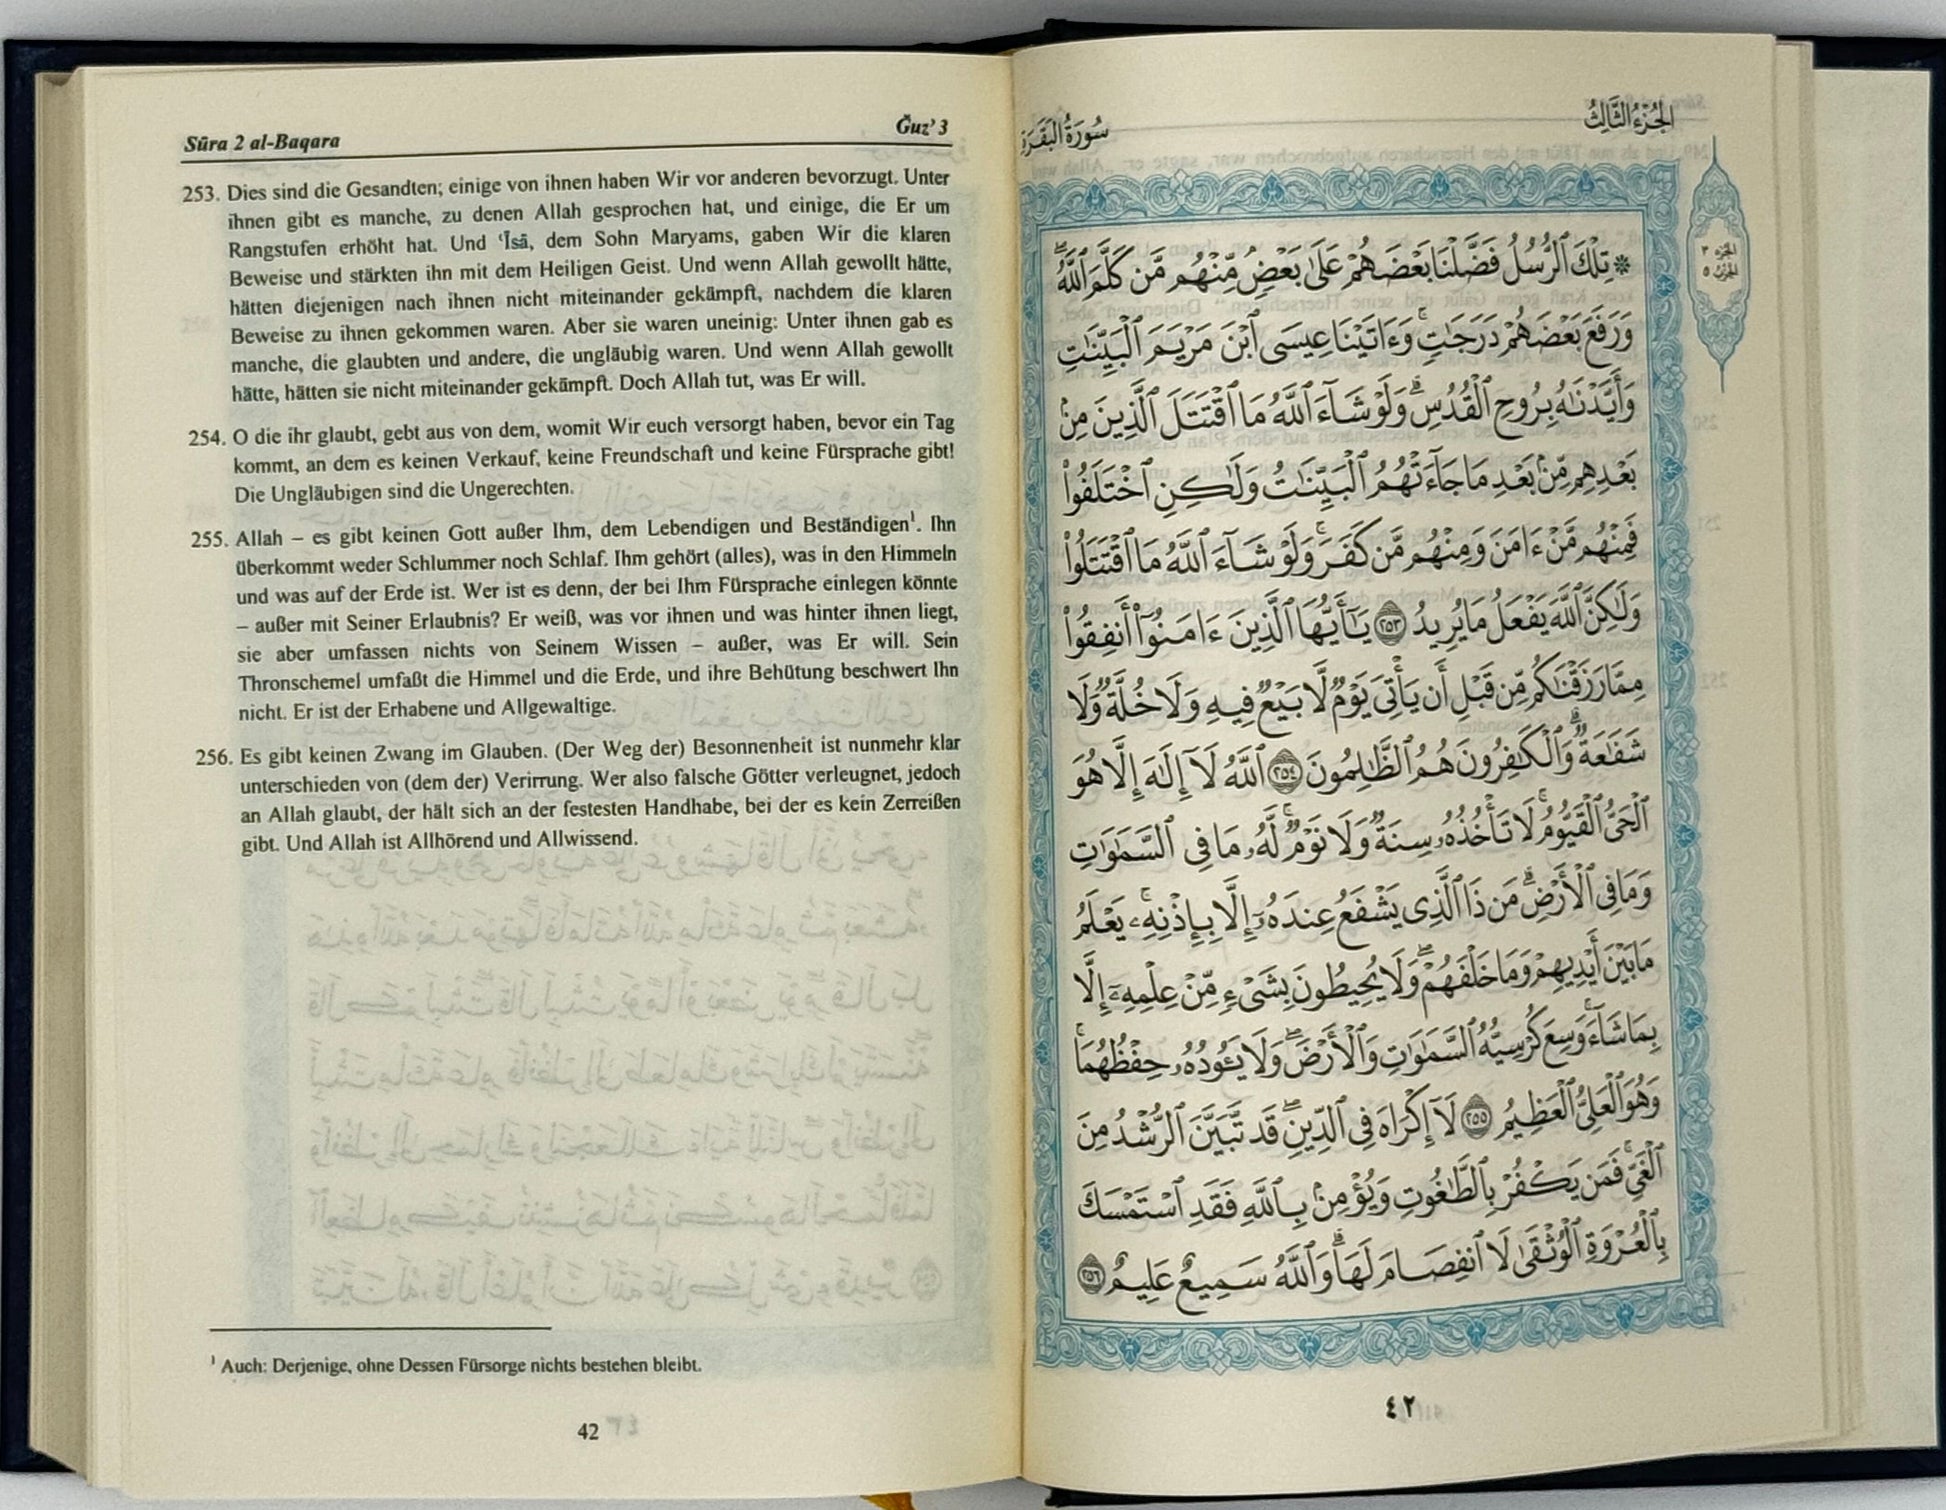 Sūra 2 al-Baqara
Ǧuz’ 3
253. Dies sind die Gesandten; einige von ihnen haben Wir vor anderen bevorzugt. Unter
ihnen gibt es manche, zu denen Allah gesprochen hat, und einige, die Er um
Rangstufen erhöht hat. Und ʿĪsā, dem Sohn Maryams, gaben Wir die klaren
Beweise und stärkten ihn mit dem Heiligen Geist. Und wenn Allah gewollt hätte,
hätten diejenigen nach ihnen nicht miteinander gekämpft, nachdem die klaren
Beweise zu ihnen gekommen waren. Aber sie waren uneinig: Unter ihnen gab es
manche, die glaubten und andere, die ungläubig waren. Und wenn Allah gewollt
hätte, hätten sie nicht miteinander gekämpft. Doch Allah tut, was Er will.
254. O die ihr glaubt, gebt aus von dem, womit Wir euch versorgt haben, bevor ein Tag
kommt, an dem es keinen Verkauf, keine Freundschaft und keine Fürsprache gibt!
Die Ungläubigen sind die Ungerechten.
255. Allah – es gibt keinen Gott außer Ihm, dem Lebendigen und Beständigen¹. Ihn
überkommt weder Schlummer noch Schlaf. Ihm gehört (alles), was in den Himmeln
und was auf der Erde ist. Wer ist es denn, der bei Ihm Fürsprache einlegen könnte
– außer mit Seiner Erlaubnis? Er weiß, was vor ihnen und was hinter ihnen liegt,
sie aber umfassen nichts von Seinem Wissen – außer, was Er will. Sein
Thronschemel umfaßt die Himmel und die Erde, und ihre Behütung beschwert Ihn
nicht. Er ist der Erhabene und Allgewaltige.
256. Es gibt keinen Zwang im Glauben. (Der Weg der) Besonnenheit ist nunmehr klar
unterschieden von (dem der) Verirrung. Wer also falsche Götter verleugnet, jedoch
an Allah glaubt, der hält sich an der festesten Handhabe, bei der es kein Zerreißen
gibt. Und Allah ist Allhörend und Allwissend.
¹ Auch: Derjenige, ohne Dessen Fürsorge nichts bestehen bleibt.
42
الجُزْءُ الثَّالِثُ
سُورَةُ البَقَرَة
الجزء ٣
الحزب ٥
۞ تِلْكَ ٱلرُّسُلُ فَضَّلْنَا بَعْضَهُمْ عَلَىٰ بَعْضٍ مِّنْهُم مَّن كَلَّمَ ٱللَّهُۖ
وَرَفَعَ بَعْضَهُمْ دَرَجَٰتٍۚ وَءَاتَيْنَا عِيسَى ٱبْنَ مَرْيَمَ ٱلْبَيِّنَٰتِ
وَأَيَّدْنَٰهُ بِرُوحِ ٱلْقُدُسِۗ وَلَوْ شَآءَ ٱللَّهُ مَا ٱقْتَتَلَ ٱلَّذِينَ مِنۢ
بَعْدِهِم مِّنۢ بَعْدِ مَا جَآءَتْهُمُ ٱلْبَيِّنَٰتُ وَلَٰكِنِ ٱخْتَلَفُوا۟
فَمِنْهُم مَّنْ ءَامَنَ وَمِنْهُم مَّن كَفَرَۚ وَلَوْ شَآءَ ٱللَّهُ مَا ٱقْتَتَلُوا۟
وَلَٰكِنَّ ٱللَّهَ يَفْعَلُ مَا يُرِيدُ ٢٥٣ يَٰٓأَيُّهَا ٱلَّذِينَ ءَامَنُوٓا۟ أَنفِقُوا۟
مِمَّا رَزَقْنَٰكُم مِّن قَبْلِ أَن يَأْتِىَ يَوْمٌ لَّا بَيْعٌ فِيهِ وَلَا خُلَّةٌ وَلَا
شَفَٰعَةٌۗ وَٱلْكَٰفِرُونَ هُمُ ٱلظَّٰلِمُونَ ٢٥٤ ٱللَّهُ لَآ إِلَٰهَ إِلَّا هُوَ
ٱلْحَىُّ ٱلْقَيُّومُۚ لَا تَأْخُذُهُۥ سِنَةٌ وَلَا نَوْمٌۚ لَّهُۥ مَا فِى ٱلسَّمَٰوَٰتِ
وَمَا فِى ٱلْأَرْضِۗ مَن ذَا ٱلَّذِى يَشْفَعُ عِندَهُۥٓ إِلَّا بِإِذْنِهِۦۚ يَعْلَمُ
مَا بَيْنَ أَيْدِيهِمْ وَمَا خَلْفَهُمْۖ وَلَا يُحِيطُونَ بِشَىْءٍ مِّنْ عِلْمِهِۦٓ إِلَّا
بِمَا شَآءَۚ وَسِعَ كُرْسِيُّهُ ٱلسَّمَٰوَٰتِ وَٱلْأَرْضَۖ وَلَا يَـُٔودُهُۥ حِفْظُهُمَاۚ
وَهُوَ ٱلْعَلِىُّ ٱلْعَظِيمُ ٢٥٥ لَآ إِكْرَاهَ فِى ٱلدِّينِۖ قَد تَّبَيَّنَ ٱلرُّشْدُ مِنَ
ٱلْغَىِّۚ فَمَن يَكْفُرْ بِٱلطَّٰغُوتِ وَيُؤْمِنۢ بِٱللَّهِ فَقَدِ ٱسْتَمْسَكَ
بِٱلْعُرْوَةِ ٱلْوُثْقَىٰ لَا ٱنفِصَامَ لَهَاۗ وَٱللَّهُ سَمِيعٌ عَلِيمٌ ٢٥٦
٤٢